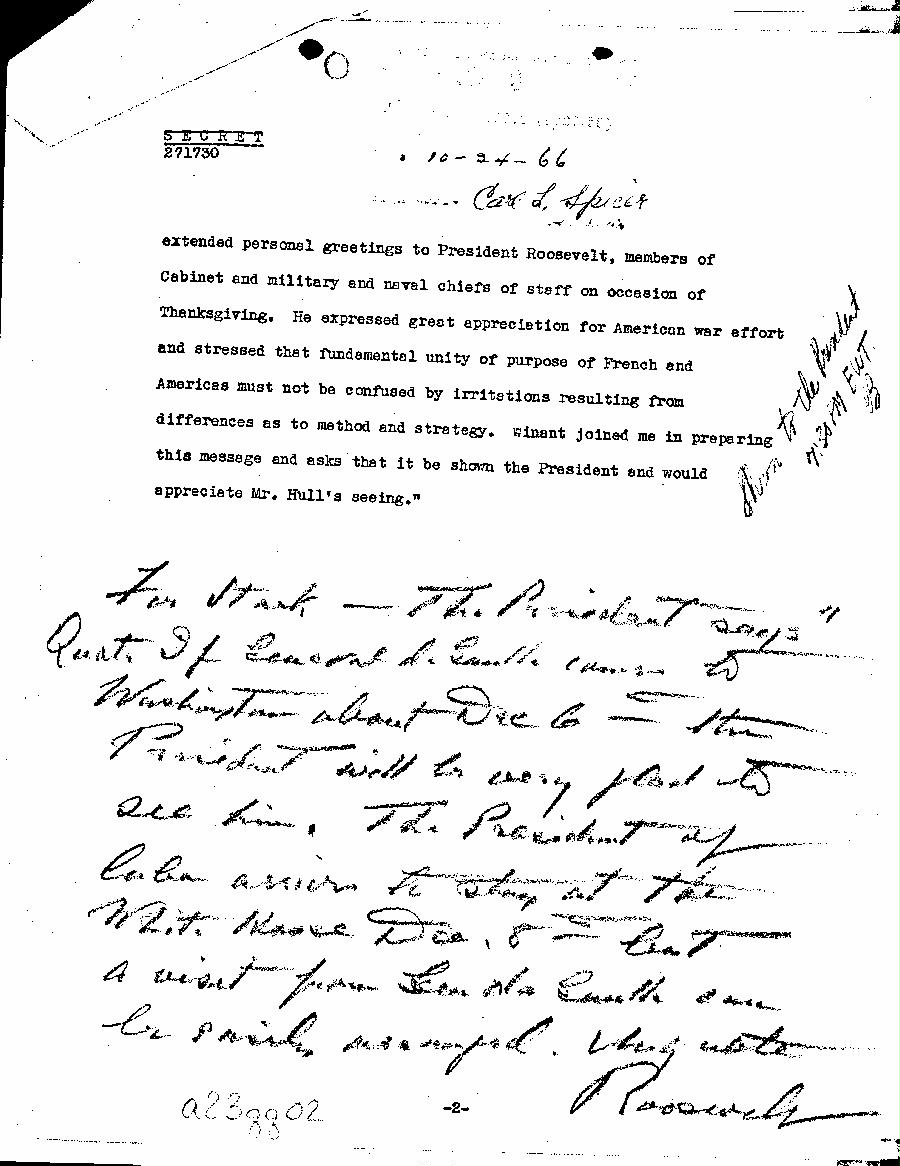 SECRET
271730
10-24-66
Carl L. Spicer
extended personal greetings to President Roosevelt, members of
Cabinet and military and naval chiefs of staff on occasion of
Thanksgiving. He expressed great appreciation for American war effort
and stressed that fundamental unity of purpose of French and
Americas must not be confused by irritations resulting from
differences as to method and strategy. Winant joined me in preparing
this message and asks that it be shown the President and would
appreciate Mr. Hull's seeing."
Shown to the President
7:30 PM EWT.
For Stark — The President says "
Quote If General de Gaulle comes to
Washington about Dec 6 — the
President will be very glad to
see him. The President of
Cuba arrives to stay at the
White House Dec. 8 — but
a visit from Gen de Gaulle can
be easily arranged. Unquote
Roosevelt
-2-